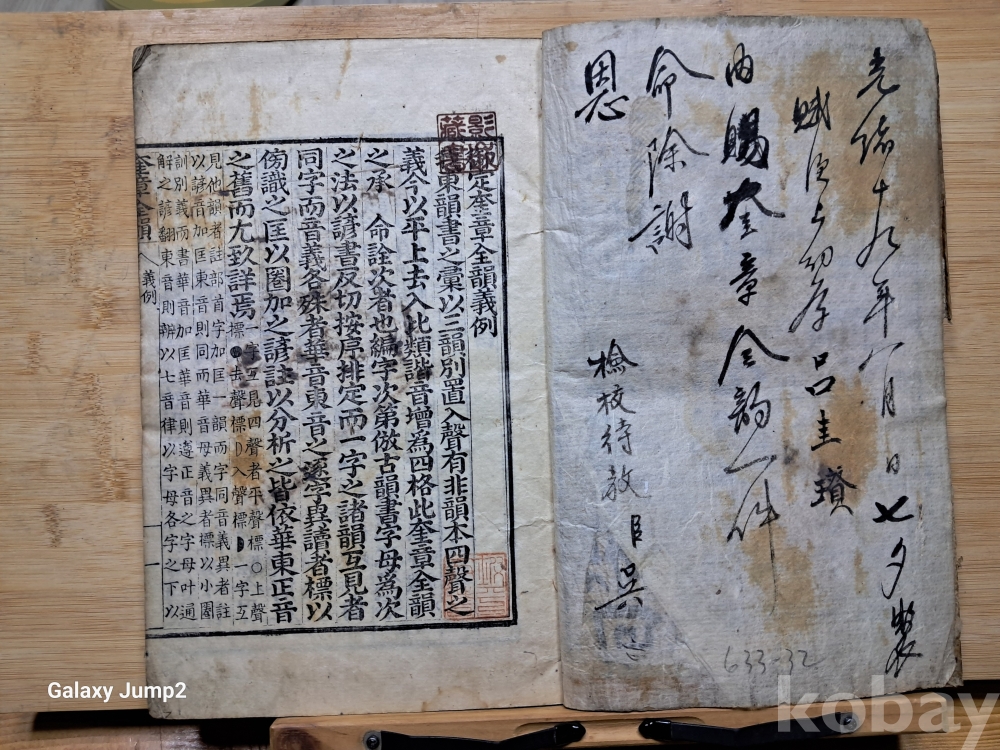 光緒十九年八月日七夕製
賦上初品圭瓚
內賜奎章全韻一件
命除謝
恩
檢校待教臣吳
定奎章全韻義例
東韻書之彙以三韻別置入聲有非韻本四聲之
義今以平上去入比類諧音增為四格此奎章全韻
之承 命詮次者也編字次第倣古韻書字母為次
之法以諺書反切按序排定而一字之諸韻互見者
同字而音義各殊者華音東音之逐字異讀者標以
傍識之匡以圈加之諺註以分析之皆依華東正音
之舊而尤致詳焉
一字互見四聲者平聲標○上聲
標●去聲標D入聲標◗一字互
見他韻者註部首字加匡一韻而字同音義異者註
以諺音加匡東音則同而華音母義異者標以小圈
訓別義而書華音加匡華音則遵正音之字母叶通
解之諺翻東音則辨以七音律以字母各字之下以
奎章全韻 義例 一
633-32
Galaxy Jump2
kobay